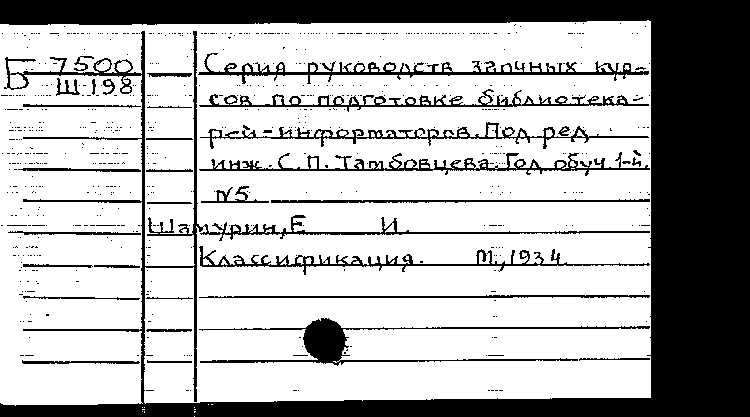 Б 7500
Ш 198
Серия руководств заочных кур-
сов по подготовке библиотека-
рей-информаторов. Под ред.
инж. С.П. Тамбовцева. Год обуч. 1-й.
N5.
Шамурин, Е И.
Классификация. М., 1934